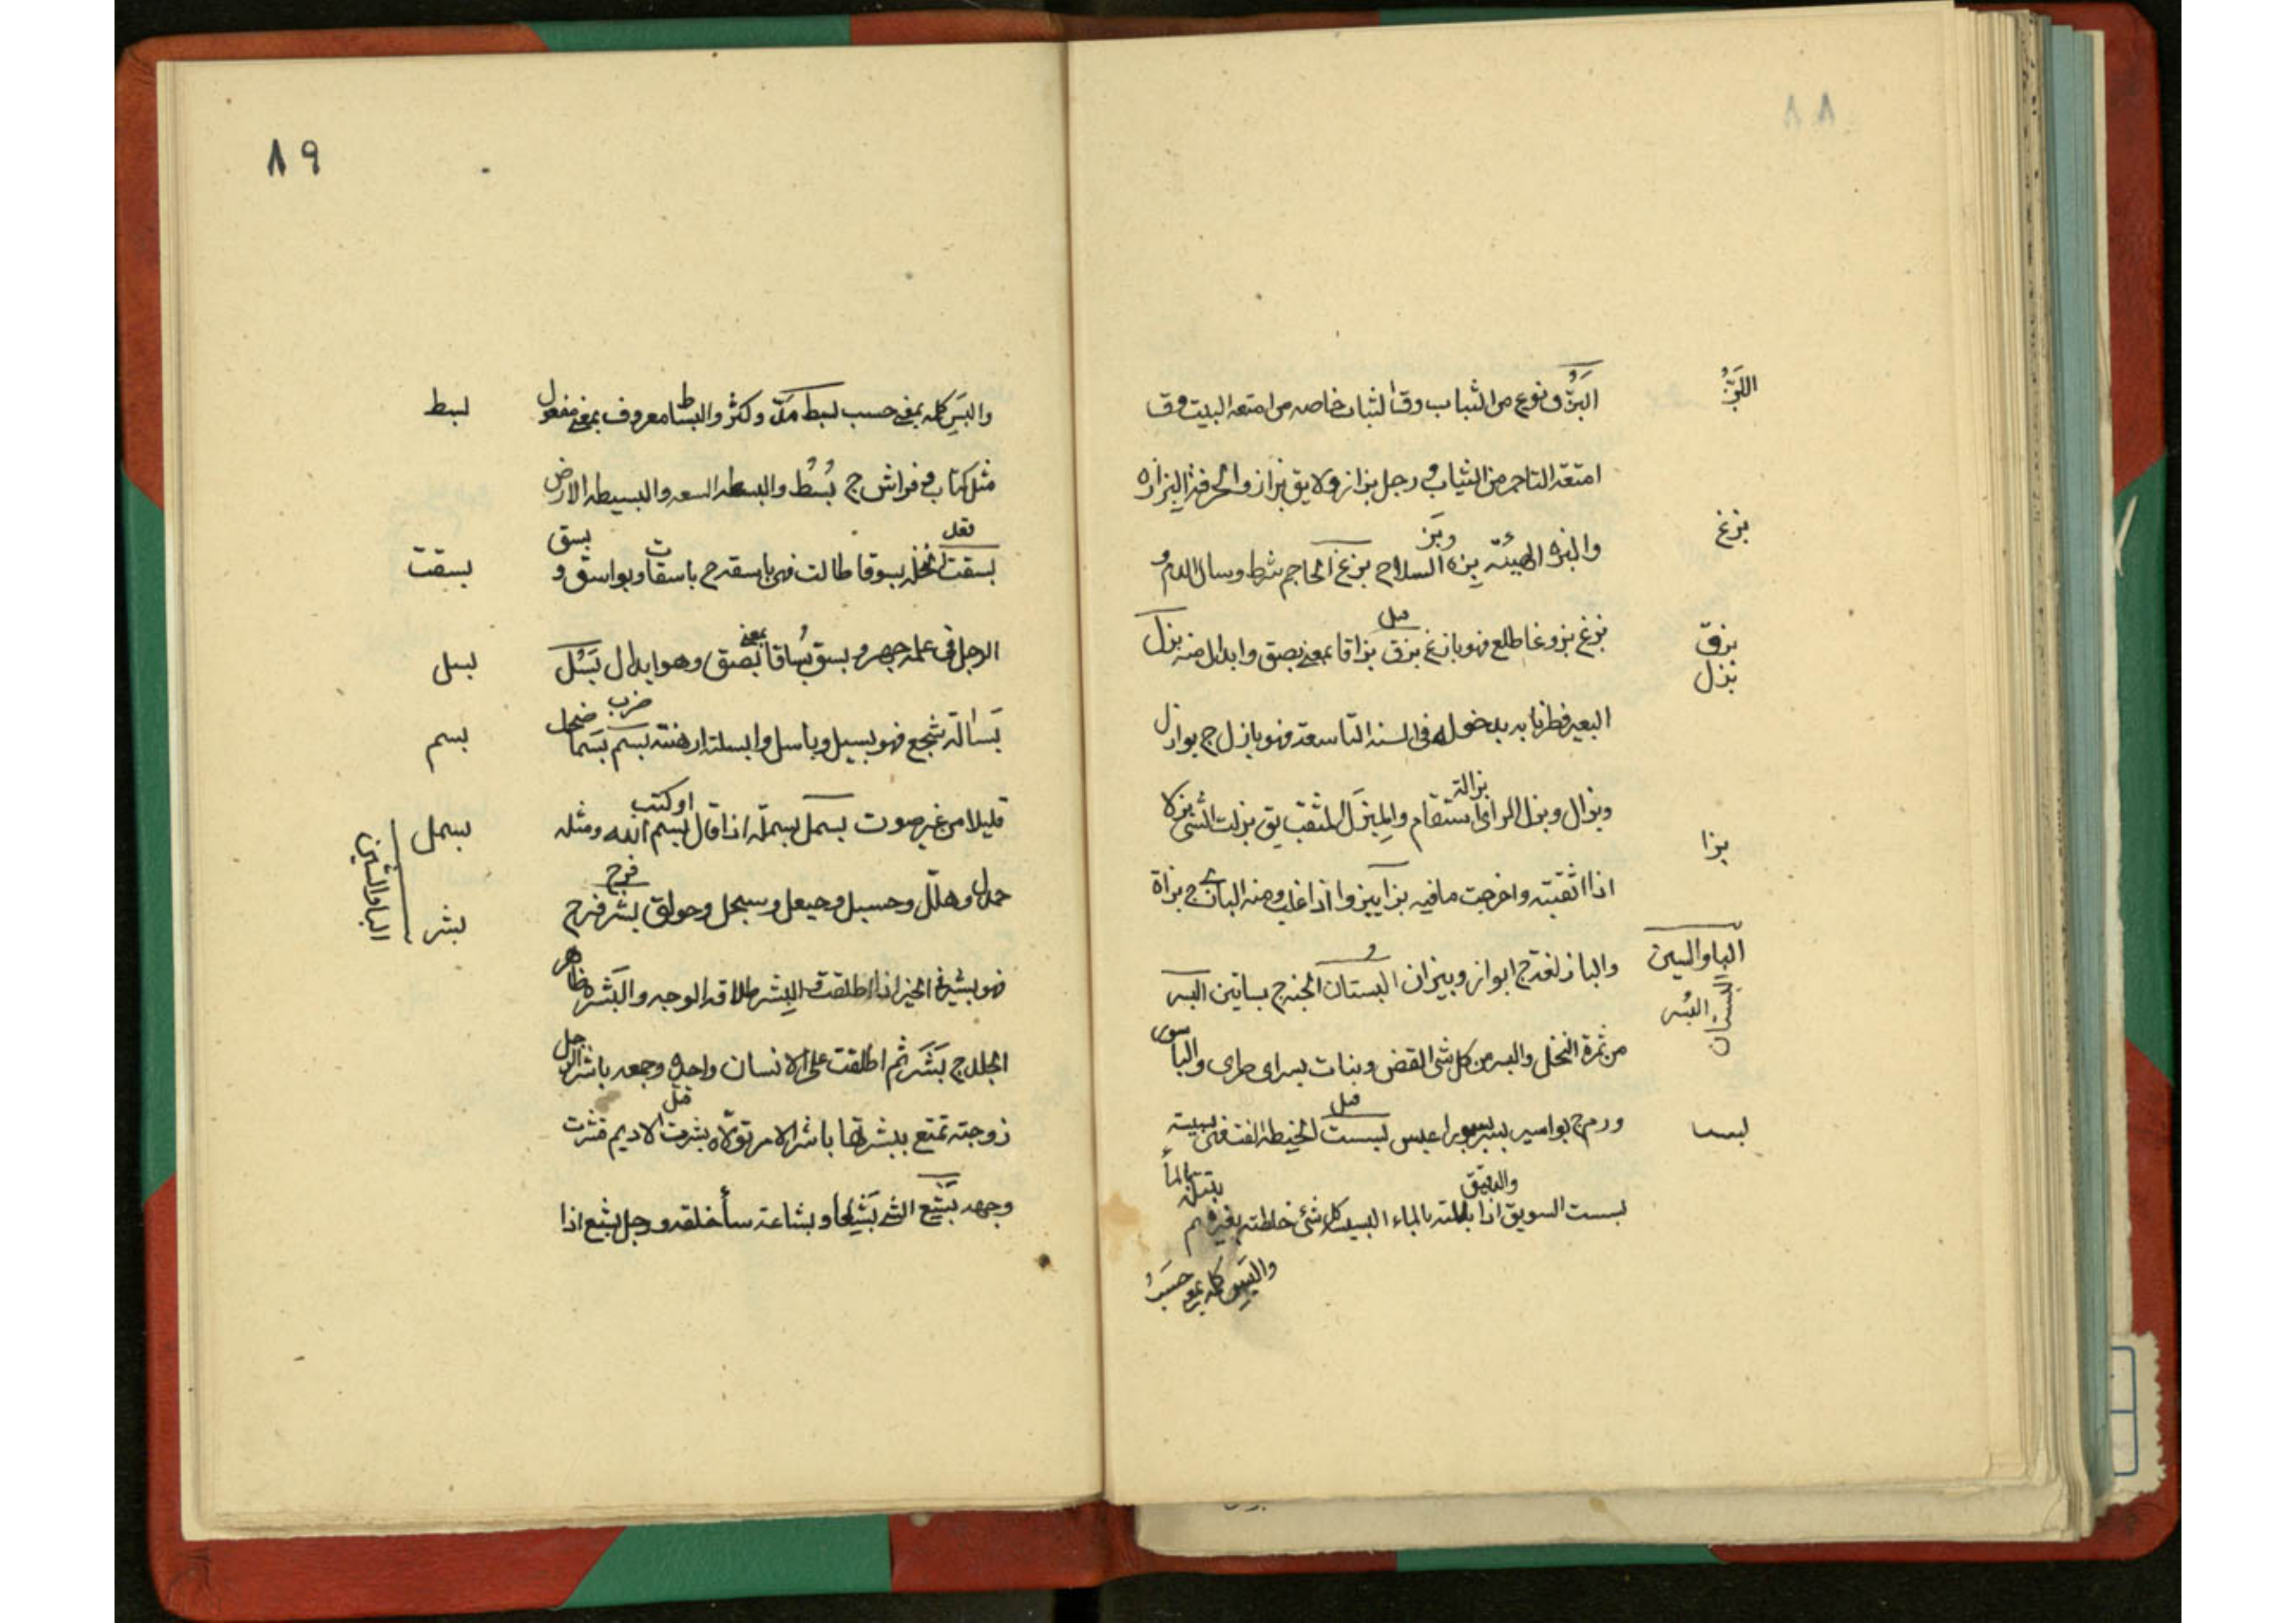 ٨٨
البَزُّ
البَزُّ ف نوع من الثياب وق الثياب خاصه من امتعه البيت وق
امتعة التاجر من الثياب و رجل بزاز ولا يق بزاز والحرفة البزازه
بزغ
والبزه الهيئة بزه السلاح وبَز بزغ الحاجم شرط وسال الدم و
بزق
بزل
بزغ بزوغا طلع فهو بازغ بزق بزاقا بمعنى بصق وابدال منه بزل
البعير فطر نابه بدخوله فى السنه التاسعة فهو بازل ج بوازل
وبزال وبزل الراى بزالة استقام والمِبزَل المثقب يق بزلت الشى بزلا
بزا
اذا ثقبته واخرجت ما فيه بزا يبزوا اذا غلب ومنه البازى ج بزاة
البا والسين
البستان
البُسر
والباز لغة ج ابواز وبيزان البستان الجنه ج بساتين البسر
من ثمرة النخل والبسر من كل شى الغض ونبات بسر اى طرى والباسور
بسس
ورم ج بواسير بسر بسورا عبس بسست الحنيطه قتل الفت فهى بسيسة
بسست السويق والدقيق اذا بللته بالماء البسيسه كل شى خلطته بغيره
والبَس كلمه بمعنى حسب
٨٩
بسط
والبَس كلمه بمعنى حسب بسط مدّ وكثر والبساط معروف بمعنى مفعول
مثل كتاب و فراش ج بُسُط والبسطه السعه والبسيطه الارض
بسقت
بسقت النخله بسوقا قعد طالت فهى باسقه ج باسقات وبواسق و بسق
بسل
الرجل فى علمه جهر و بسق بُساقا بمعنى بصق وهو ابدال بَسُل
بسم
بَسالة شجع فهو بسيل وباسل وابسلته ارهنته بسم ضرب بَسما ضحك
بسمل
قليلا من غير صوت بسمل بسملة اذا قال او كتب بسم الله ومثله
البا والشين
بشر
حمدل وهلّل وحسبل وحيعل وسبحل وحولق بشر فرح فرح
فهو بشير فى الخير اذا اطلقت و البِشر طلاقه الوجه والبَشَره ظاهر
الجلد ج بَشَر ثم اطلقت على الانسان واحده وجمعه باشر الرجل
زوجته تمتع ببشرتها باشر الامر تولّاه بشرت الاديم قتل قشرت
وجهه بَشِع الشى بَشَعا وبشاعة ساء خلقه ورجل بشع اذا